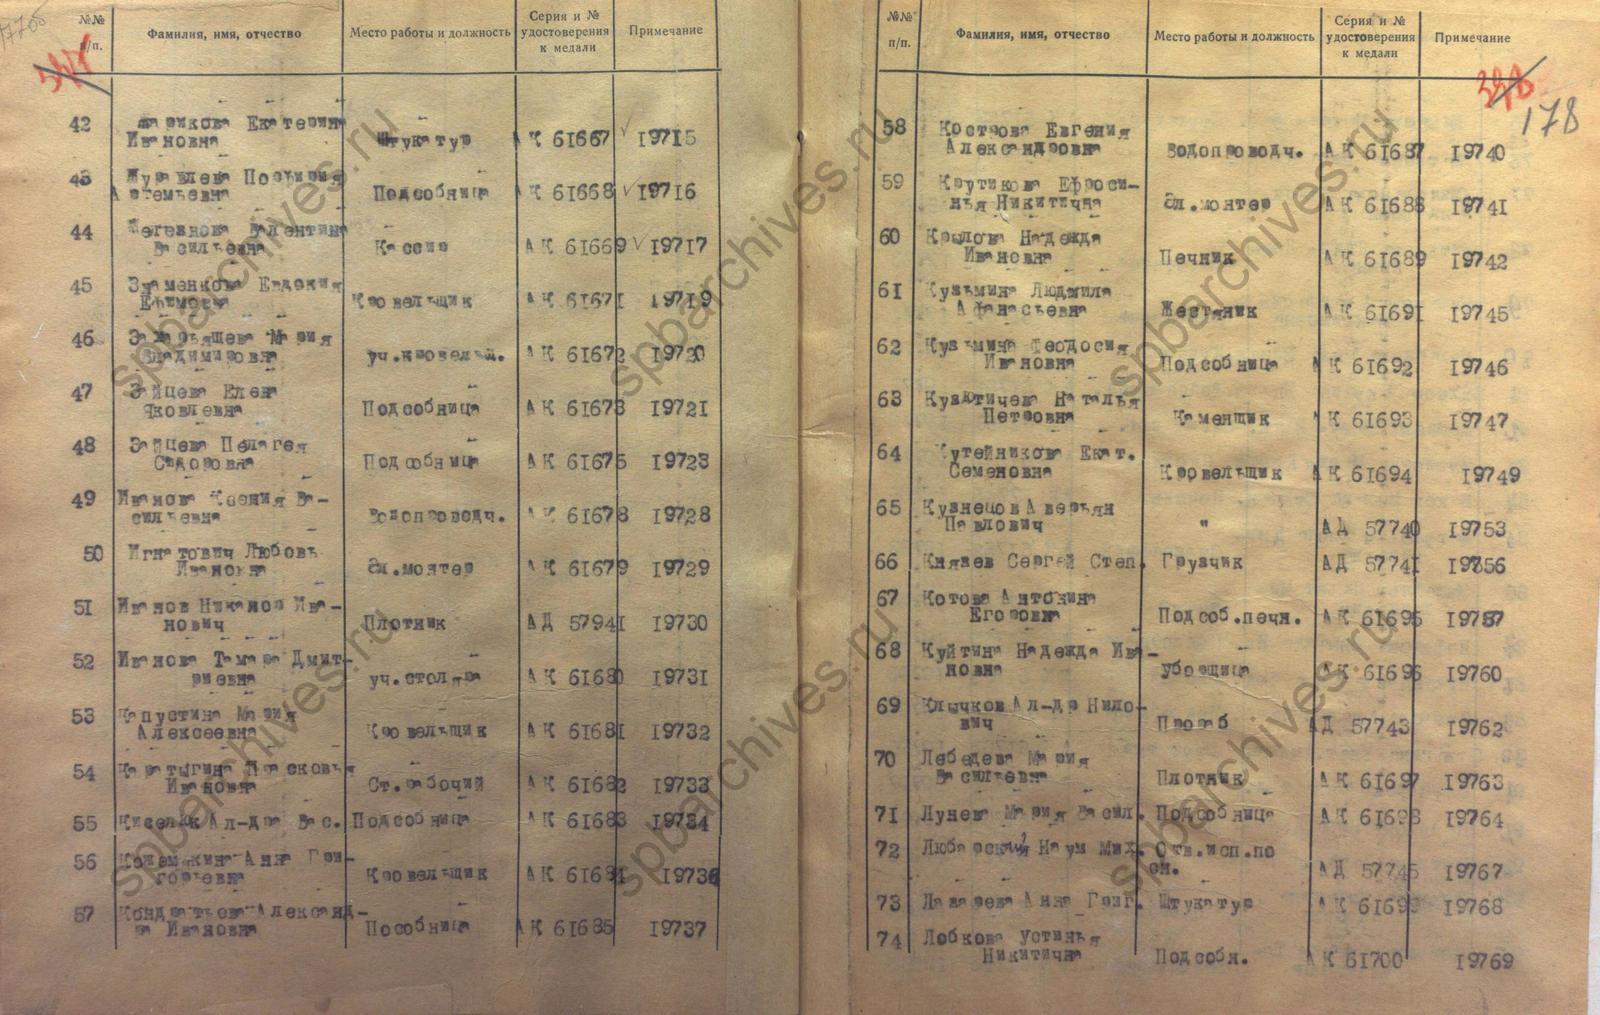 №№ п/п. Фамилия, имя, отчество Место работы и должность Серия и № удостоверения к медали Примечание
42 Жарикова Екатерина Штукатур АК 61667 19715
Ивановна
43 Журавлева Порфирия Подсобница АК 61668 19716
Артемьевна
44 Валентина Кассир АК 61669 19717
Васильевна
45 Знаменкова Евдокия Кровельщик АК 61671 19719
Ефимовна
46 Захарьящева Мария уч.кровельщ. АК 61672 19720
Владимировна
47 Зайцева Елена Подсобница АК 61673 19721
Яковлевна
48 Зайцева Пелагея Подсобница АК 61675 19723
Сидоровна
49 Иванова Ксения Ва- Водопроводч. АК 61678 19728
сильевна
50 Игнатович Любовь Эл.монтер АК 61679 19729
Ивановна
51 Иванов Никанор Ива- Плотник АД 57941 19730
нович
52 Иванова Тамара Дмит- уч.столяра АК 61680 19731
риевна
53 Капустина Мария Кровельщик АК 61681 19732
Алексеевна
54 Каратыгина Прасковья Ст.рабочий АК 61682 19733
Ивановна
55 Киселюк Ал-дра Вас. Подсобница АК 61683 19734
56 Кожемякина Анна Гри- Кровельщик АК 61684 19736
горьевна
57 Кондратьева Александ- Пособница АК 61685 19737
ра Ивановна
№№ п/п. Фамилия, имя, отчество Место работы и должность Серия и № удостоверения к медали Примечание
178
58 Кострова Евгения Водопроводч. АК 61687 19740
Александровна
59 Крутикова Ефроси- Эл.монтер АК 61688 19741
нья Никитична
60 Крылова Надежда Печник АК 61689 19742
Ивановна
61 Кузьмина Людмила Жестяник АК 61691 19745
Афанасьевна
62 Кузьмина Феодосия Подсобница АК 61692 19746
Ивановна
63 Наталья Каменщик АК 61693 19747
Петровна
64 Кутейникова Екат. Кровельщик АК 61694 19749
Семеновна
65 Кузнецов Аверьян " АД 57740 19753
Павлович
66 Князев Сергей Степ. Грузчик АД 57741 19756
67 Котова Антонина Подсоб.печн. АК 61695 19757
Егоровна
68 Куйтина Надежда Ива- уборщица АК 61696 19760
новна
69 Клычков Ал-др Нило- Прораб АД 57743 19762
вич
70 Лебедева Мария Плотник АК 61697 19763
Васильевна
71 Лунева Мария Васил. Подсобница АК 61698 19764
72 Любарский Наум Мих. Отв.исп.по
сн. АД 57745 19767
73 Лазарева Анна Григ. Штукатур АК 61699 19768
74 Лобкова Устинья Подсобн. АК 61700 19769
Никитична
spbarchives.ru